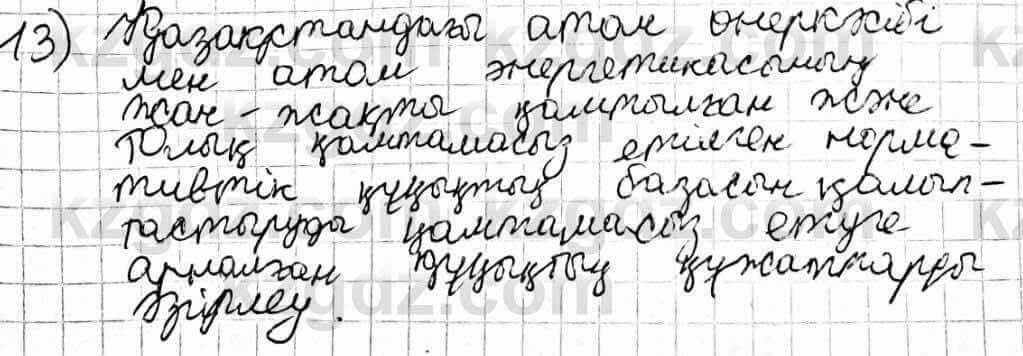 13) Қазақстандағы атом өнеркәсібі
мен атом энергетикасының
жан-жақты қамтылған және
толық қамтамасыз етілген норма-
тивтік құқықтық базасын қалып-
тастыруды қамтамасыз етуге
арналған құқықтық құжаттарды
әзірлеу.